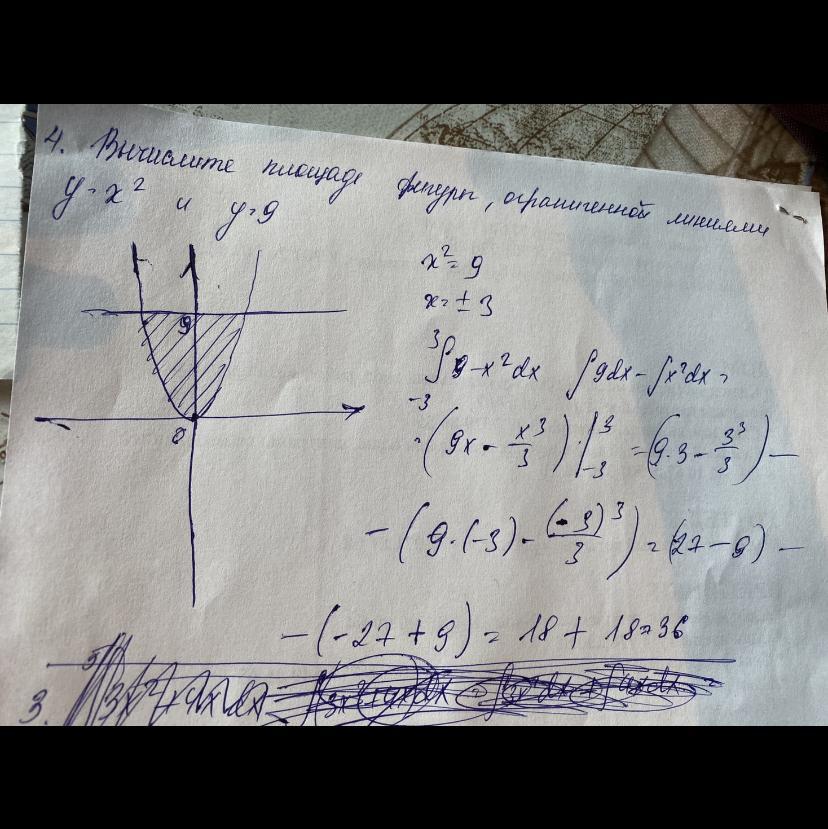 4. Вычислите площадь фигуры, ограниченной линиями
y = x² и y = 9
x² = 9
x = ± 3
9
0
∫₋₃³ 9 - x² dx ∫9dx - ∫x²dx =
= (9x - x³/3) |₋₃³ = (9·3 - 3³/3) -
- (9·(-3) - (-3)³/3) = (27 - 9) -
- (-27 + 9) = 18 + 18 = 36
3.